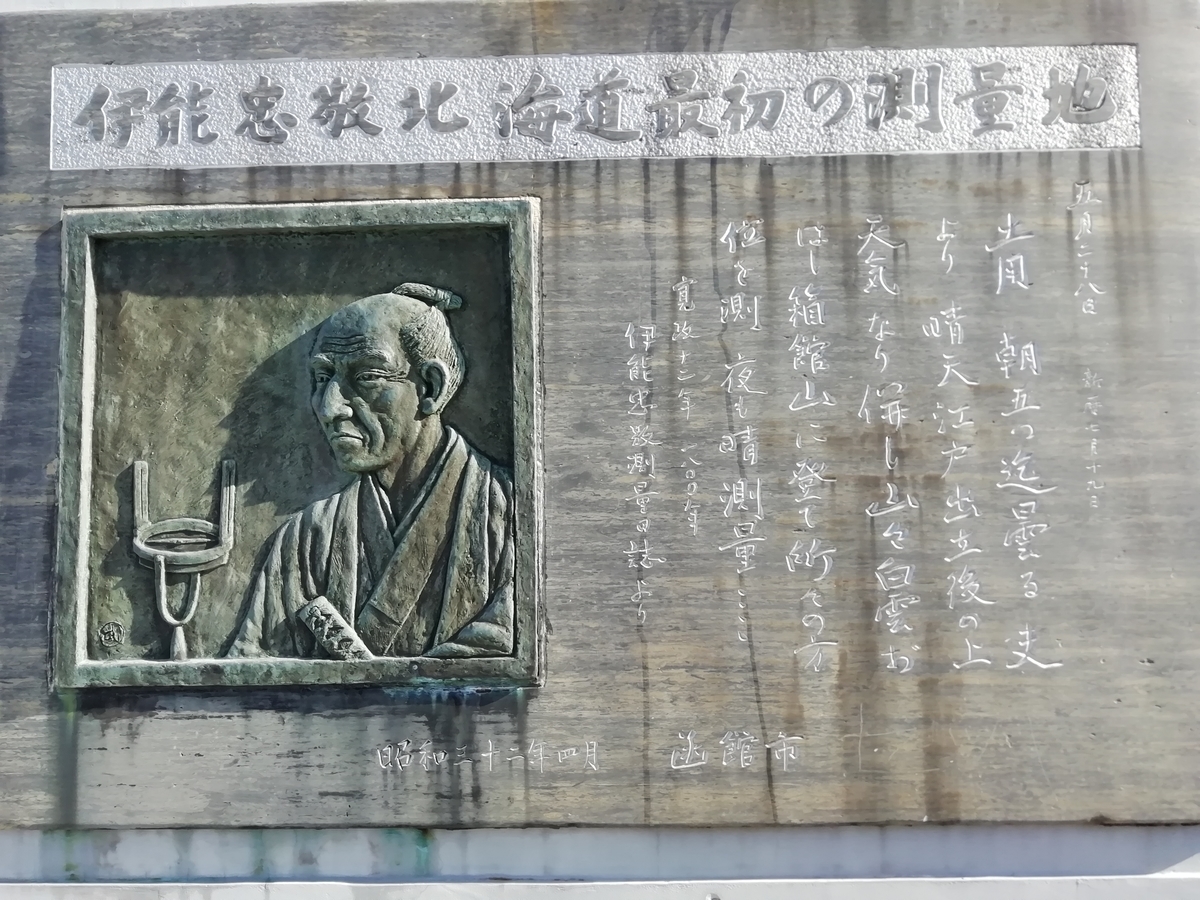 伊能忠敬北海道最初の測量地
五月二十八日 新暦七月十九日
出同 朝五つ迄曇る 夫
より 晴天 江戸出立後の上
天気なり 併し山々白雲お
ほし 箱館山に登て所々の方
位を測 夜も晴 測量
寛政十二年 一八〇〇年
伊能忠敬測量日誌より
昭和三十二年四月 函館市